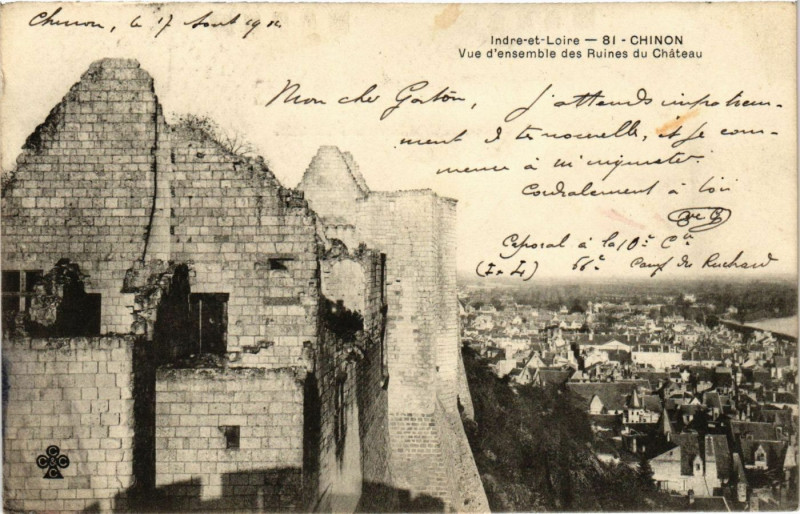 Chinon, le 17 Aout 1914
Indre-et-Loire — 81 - CHINON
Vue d'ensemble des Ruines du Château
Mon cher Gaston,
J'attends impatiem-
ment de tes nouvelles, et je com-
mence à m'inquieter
Cordialement à toi
Caporal à la 10e Cie
(I & L) 66e Camp du Ruchard
C C C